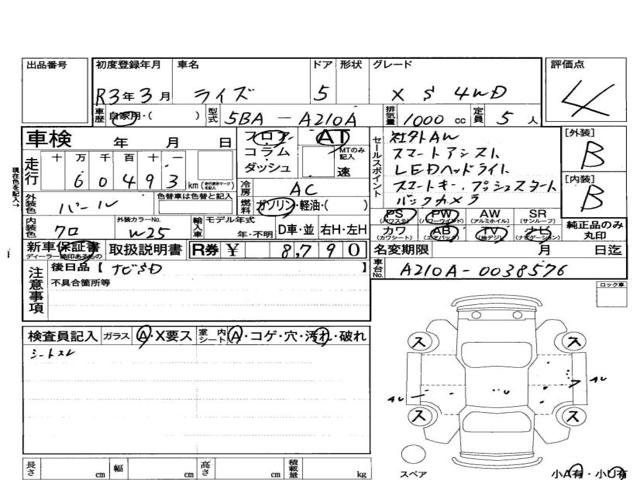 出品番号 初度登録年月 車名 ドア 形状 グレード 評価点
R3年3月 ライズ 5 X S 4WD 4
車歴 自家用・( ) 型式 5BA-A210A 排気量 1000 cc 定員 5 人
車検 年 月 日 フロア AT セールスポイント 社外AW [外装]
コラム MTのみ記入 スマートアシスト B
走行 十 万 千 百 十 一 ダッシュ 速 LEDヘッドライト
60493 km 冷房 AC スマートキー、プッシュスタート [内装]
外装色 パール 色替車は色替と記入 燃料 ガソリン・軽油・( ) バックカメラ B
PS PW AW SR
(パワステ) (パワーウインド) (アルミホイル) (サンルーフ)
内装色 クロ 外装カラーNo. W25 輸入車 モデル年式 年・不明 D車・並 右H・左H カワ AB TV ナビ 純正品のみ丸印
(カワシート) (エアバック) (地デジ) (ナビゲーション)
新車保証書 取扱説明書 R券 ¥ 8,790 名変期限 月 日迄
ディーラー捺印あるもの
注意事項 後日品【 TO3D 】 車台No. A210A-0038576
不具合箇所等
ロック車
検査員記入 ガラス A・X要ス 室内シート A・コゲ・穴・汚れ・破れ
シートスレ
ス ス
AW AW
ス ス
スペア
長さ cm 幅 cm 高さ cm 積載量 kg 小A有・小U有
現在色を記入→